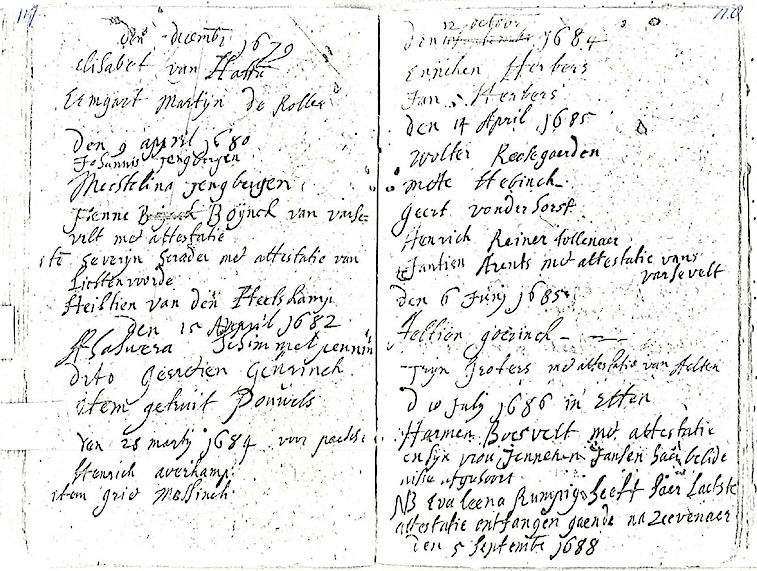 117.
den decemb 1679
elisabet van Hattu
Ermgart Martijn de Roller
Den 9 april 1680
Johannis jengbergen
Mechtelina jengbergen
Fenne Boÿnck van varse-
velt met attestatie
itē Severijn Serader met attestatie van
Lichtenvorde
Heiltien van den Heetskamp
den 15 Appril 1682
Ahaswera Schimmelpennin
dito Gesretien Genrinck
item getruit Pouwels
Van 28 martij 1684 voor paesche
Henrich averkamp
item griet Messinck
1128
12 octobr
den 1684
Ennichen Herbers
Jan Herbers
den 14 April 1685
Wolter Reesegaerden
mette Hebinck
Geert vonderhorst
Henrich Reiner follenaer
Jantien Arents met attestatie vans
varsevelt
den 6 Junij 1685
Aeltien goerinck
Trijn Groters met attestatie van Aelten
d 10 July 1686 in Etten
Harmen Boesvelt met attestatie
en sijn vrou Jenneken Jansen haer belide
nisse
NB Eva leena Rumpigs heeft haer laetste
attestatie entfangen gaende na Zeevenaer
den 5 Septembr 1688